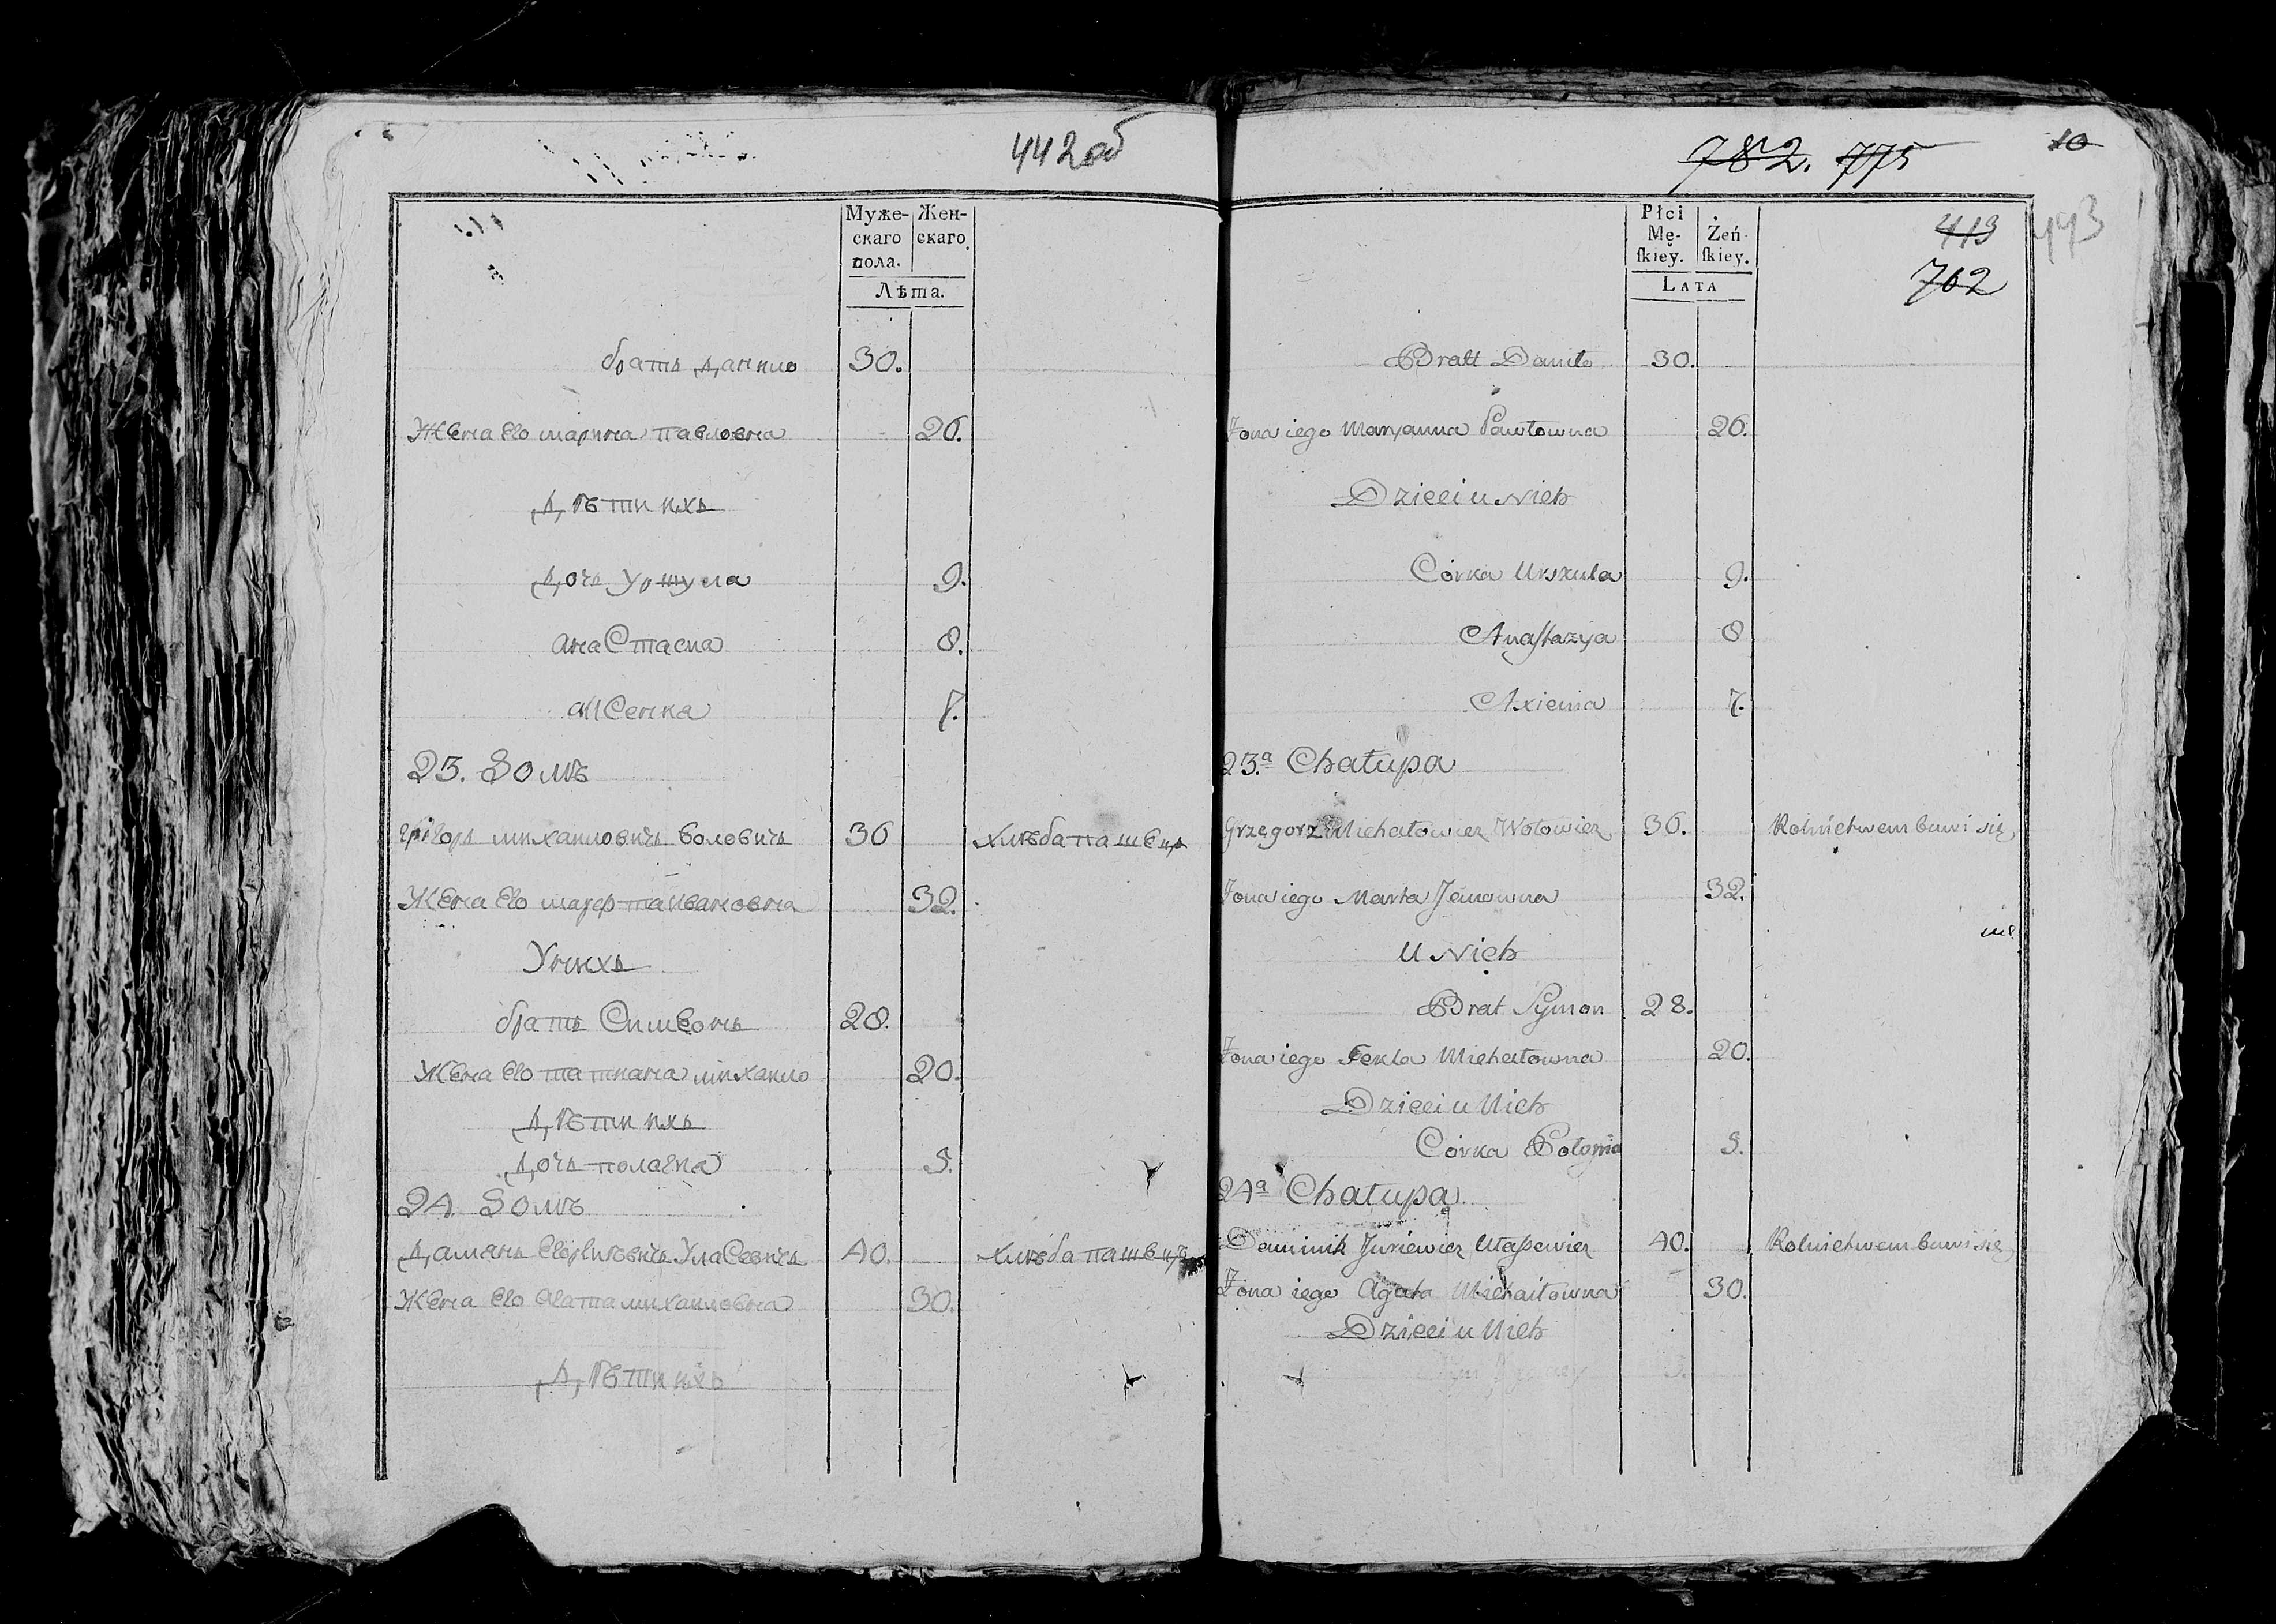 442 об
Муже-
скаго
пола.
Жен-
скаго.
Лѣта.
братъ данило 30.
Жена Его марина павловна 26.
дѣти ихъ
дочь Уршула 9.
анаСтасиа 8.
акСениа 7.
23. Домъ
григоръ михаиловичъ воловичъ 36 хлѣбапашецъ
Жена Его марфта ивановна 32.
У нихъ
братъ Симеонъ 28.
Жена Его татиана михаило 20.
дѣти ихъ
дочь полагиа 5.
24. Домъ
дамянъ УлаСевичъ 40. хлѣбапашецъ
Жена Его агата михаиловна 30.
дѣти ихъ
782. 775
10
443
Płci
Mę-
ſkiey.
Żeń-
ſkiey.
Lata
413
762
Bratt Daniło 30.
Żona iego Maryanna Pawłowna 26.
Dzieci u Nich
Córka Urszula 9.
Anastazya 8
Axienia 7.
23.a Chałupa
Grzegorz Michałowicz Wołowicz 36. Rolnictwem bawi się
Żona iego Marta Janowna 32.
U Nich
Brat Symon 28.
Żona iego Tekla Michałowna 20.
Dzieci u Nich
Córka Połonia 5.
24a Chałupa
Dominik Juriewicz Ułasewicz 40. Rolnictwem bawi się
Żona iego Agata Michaiłowna 30.
Dzieci u Nich